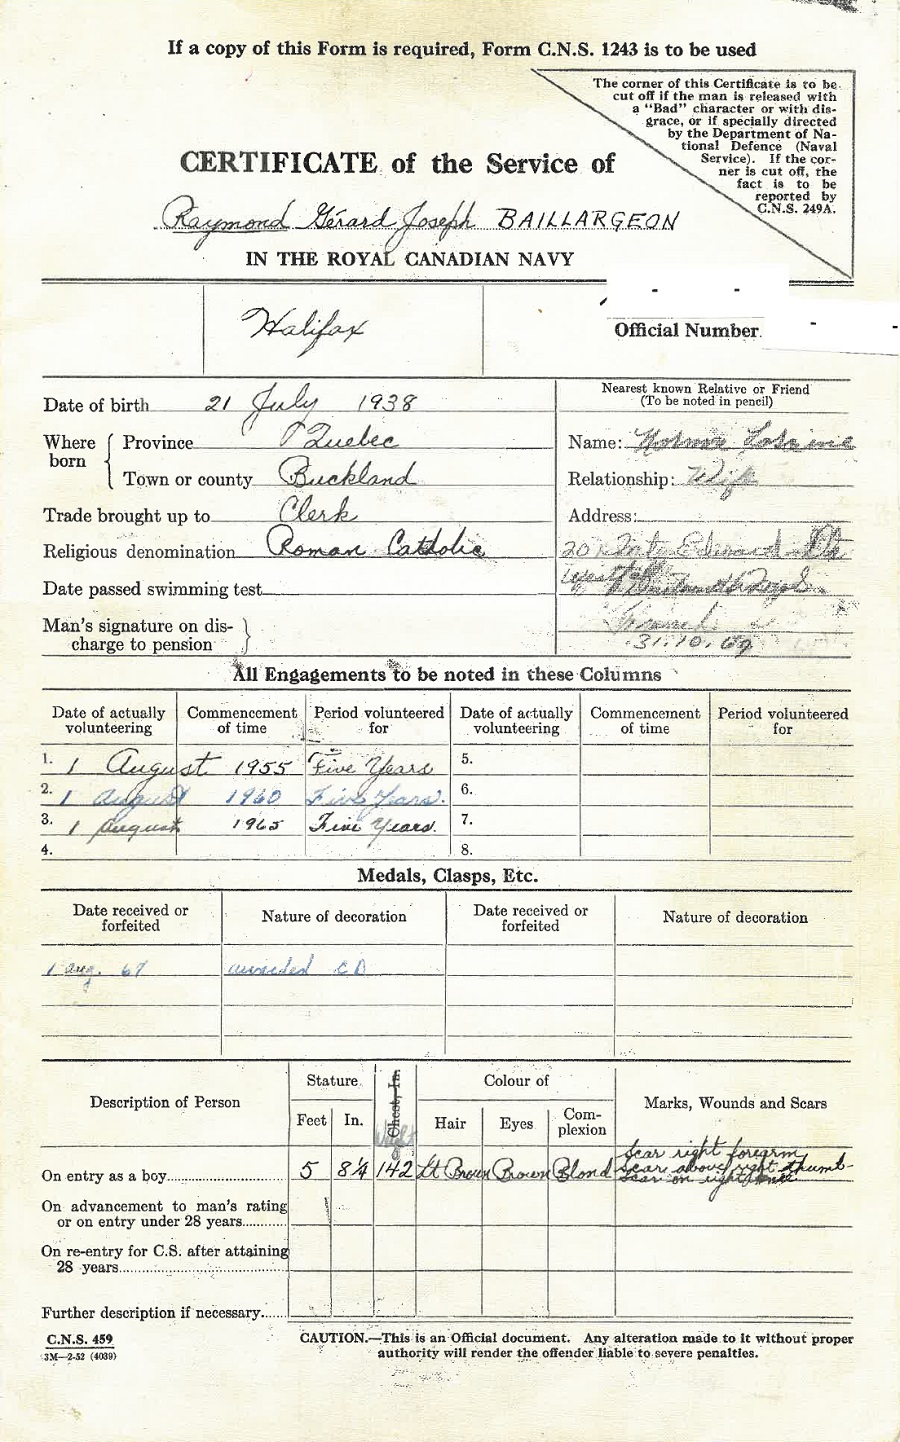 If a copy of this Form is required, Form C.N.S. 1243 is to be used
The corner of this Certificate is to be
cut off if the man is released with
a "Bad" character or with dis-
grace, or if specially directed
by the Department of Na-
tional Defence (Naval
Service). If the cor-
ner is cut off, the
fact is to be
reported by
C.N.S. 249A.
CERTIFICATE of the Service of
Raymond Gérard Joseph BAILLARGEON
IN THE ROYAL CANADIAN NAVY
Halifax
Official Number
Nearest known Relative or Friend
(To be noted in pencil)
Date of birth 21 July 1938
Where born
Province Quebec
Town or county Buckland
Trade brought up to Clerk
Religious denomination Roman Catholic
Date passed swimming test
Man's signature on dis-
charge to pension
Name:
Relationship: Wife
Address:
20 Edward
31.10.69
All Engagements to be noted in these Columns
Date of actually volunteering Commencement of time Period volunteered for Date of actually volunteering Commencement of time Period volunteered for
1. 1 August 1955 Five Years 5.
2. 1 August 1960 Five Years. 6.
3. 1 August 1965 Five Years. 7.
4. 8.
Medals, Clasps, Etc.
Date received or forfeited Nature of decoration Date received or forfeited Nature of decoration
1 Aug. 67 awarded CD
Description of Person Stature Feet In. Chest, In. Weight Colour of Hair Eyes Com-plexion Marks, Wounds and Scars
On entry as a boy 5 8¼ 142 Lt Brown Brown Blond Scar right forearm
Scar above right thumb-
Scar on right knee
On advancement to man's rating
or on entry under 28 years
On re-entry for C.S. after attaining
28 years
Further description if necessary
C.N.S. 459
3M—2-52 (4039)
CAUTION.—This is an Official document. Any alteration made to it without proper
authority will render the offender liable to severe penalties.